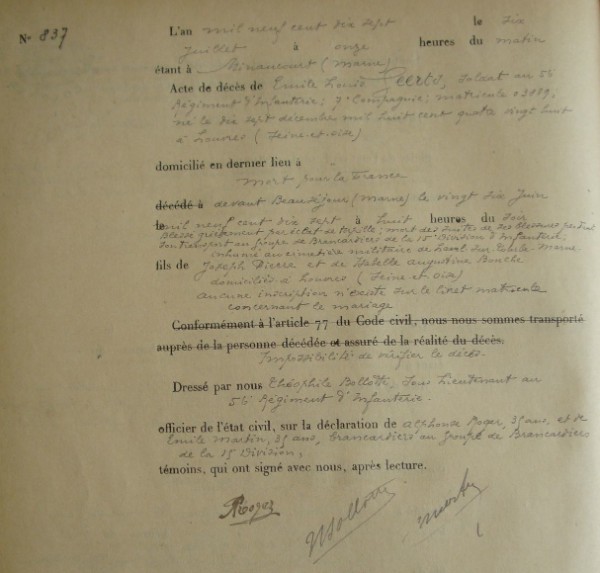 N° 837
L'an mil neuf cent dix sept le six
juillet à onze heures du matin
étant à Minaucourt (Marne)
Acte de décès de Emile Louis Peerts, soldat au 56
Régiment d'Infanterie; 7e Compagnie; matricule 03089,
né le dix sept décembre mil huit cent quatre vingt huit
à Louvres (Seine-et-Oise)
domicilié en dernier lieu à
Mort pour la France
décédé à devant Beauséjour (Marne) le vingt six Juin
le mil neuf cent dix sept à huit heures du soir
Blessé grièvement par éclat de torpille; mort des suites de ses blessures pendant
son transport au groupe de Brancardiers de la 15e Division d'Infanterie;
inhumé au cimetière militaire de Laval sur Tourbe Marne
fils de Joseph Pierre et de Isabelle Augustine Bouche
domiciliés à Louvres (Seine-et-Oise)
aucune inscription n'existe sur le livret matricule
concernant le mariage
Conformément à l'article 77 du Code civil, nous nous sommes transporté
auprès de la personne décédée et assuré de la réalité du décès.
Impossibilité de vérifier le décès.
Dressé par nous Théophile Bollotte, Sous Lieutenant au
56e Régiment d'Infanterie.
officier de l'état civil, sur la déclaration de Alphonse Roger, 35 ans, et de
Emile Martin, 35 ans, brancardiers au Groupe de Brancardiers
de la 15 Division,
témoins, qui ont signé avec nous, après lecture.